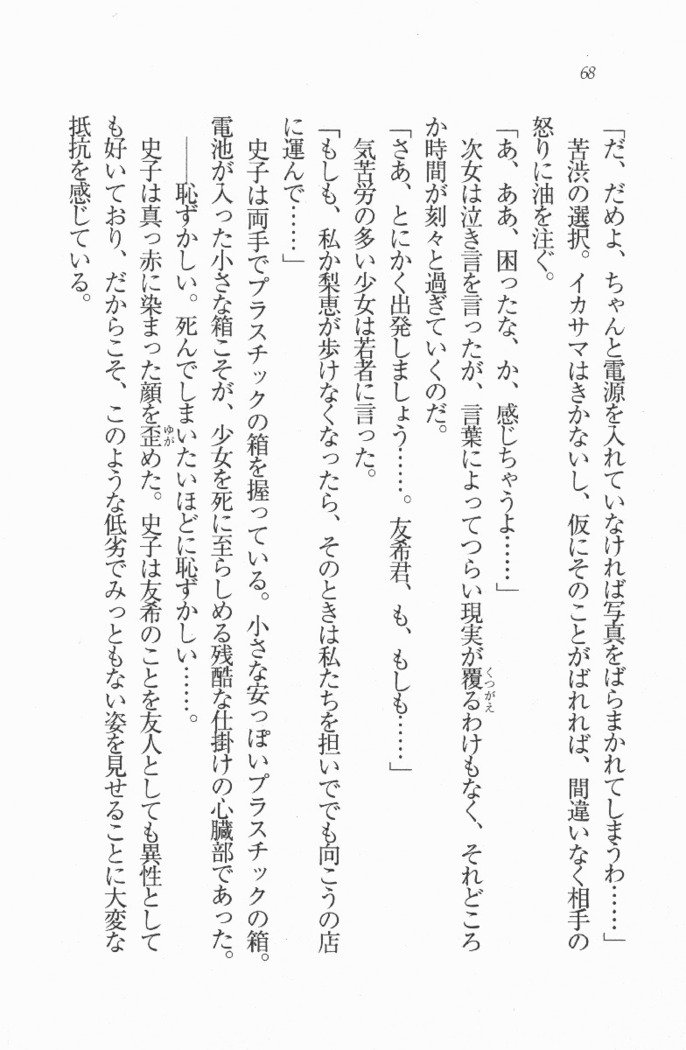 68
「だ、だめよ、ちゃんと電源を入れていなければ写真をばらまかれてしまうわ……」
苦渋の選択。イカサマはきかないし、仮にそのことがばれれば、間違いなく相手の
怒りに油を注ぐ。
「あ、ああ、困ったな、か、感じちゃうよ……」
次女は泣き言を言ったが、言葉によってつらい現実が覆るわけもなく、それどころ
か時間が刻々と過ぎていくのだ。
「さあ、とにかく出発しましょう……。友希君、も、もしも……」
気苦労の多い少女は若者に言った。
「もしも、私か梨恵が歩けなくなったら、そのときは私たちを担いででも向こうの店
に運んで……」
史子は両手でプラスチックの箱を握っている。小さな安っぽいプラスチックの箱。
電池が入った小さな箱こそが、少女を死に至らしめる残酷な仕掛けの心臓部であった。
――恥ずかしい。死んでしまいたいほどに恥ずかしい……。
史子は真っ赤に染まった顔を歪めた。史子は友希のことを友人としても異性として
も好いており、だからこそ、このような低劣でみっともない姿を見せることに大変な
抵抗を感じている。